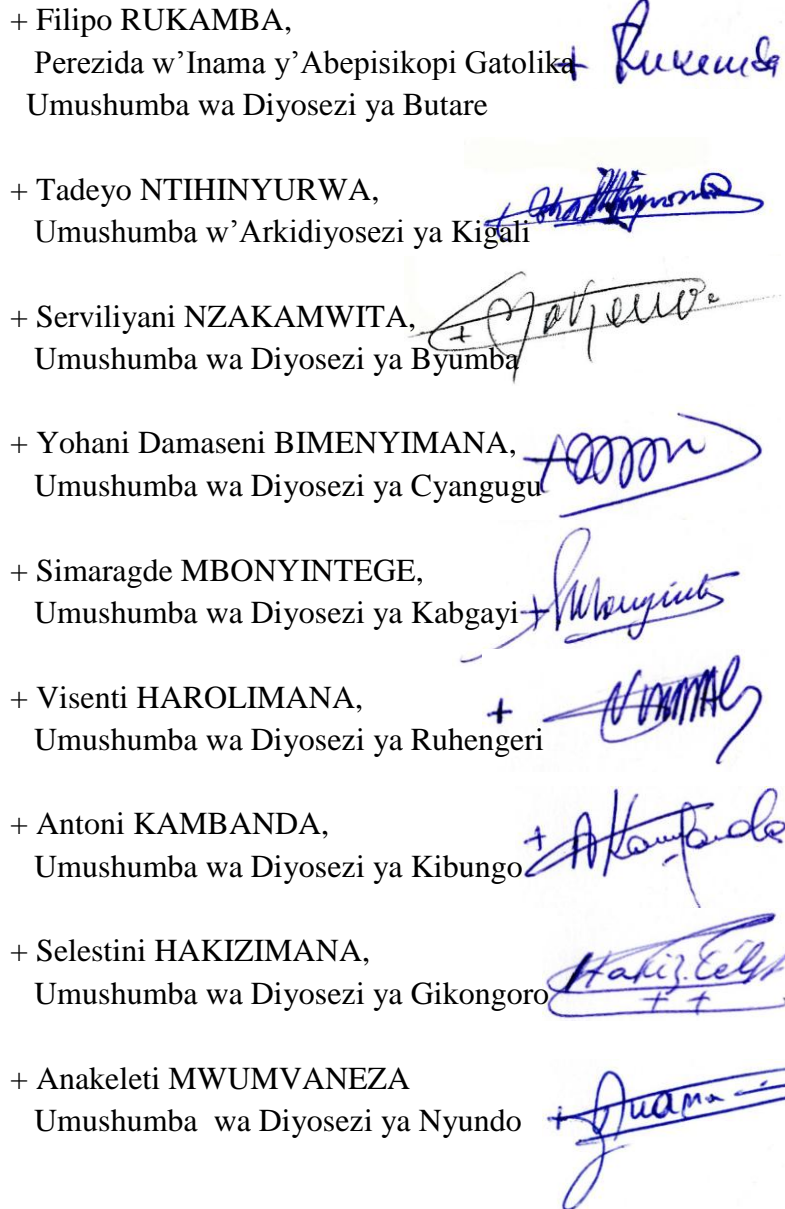 + Filipo RUKAMBA,
Perezida w'Inama y'Abepisikopi Gatolika
Umushumba wa Diyosezi ya Butare
+ Tadeyo NTIHINYURWA,
Umushumba w'Arkidiyosezi ya Kigali
+ Serviliyani NZAKAMWITA,
Umushumba wa Diyosezi ya Byumba
+ Yohani Damaseni BIMENYIMANA,
Umushumba wa Diyosezi ya Cyangugu
+ Simaragde MBONYINTEGE,
Umushumba wa Diyosezi ya Kabgayi
+ Visenti HAROLIMANA,
Umushumba wa Diyosezi ya Ruhengeri
+ Antoni KAMBANDA,
Umushumba wa Diyosezi ya Kibungo
+ Selestini HAKIZIMANA,
Umushumba wa Diyosezi ya Gikongoro
+ Anakeleti MWUMVANEZA
Umushumba wa Diyosezi ya Nyundo